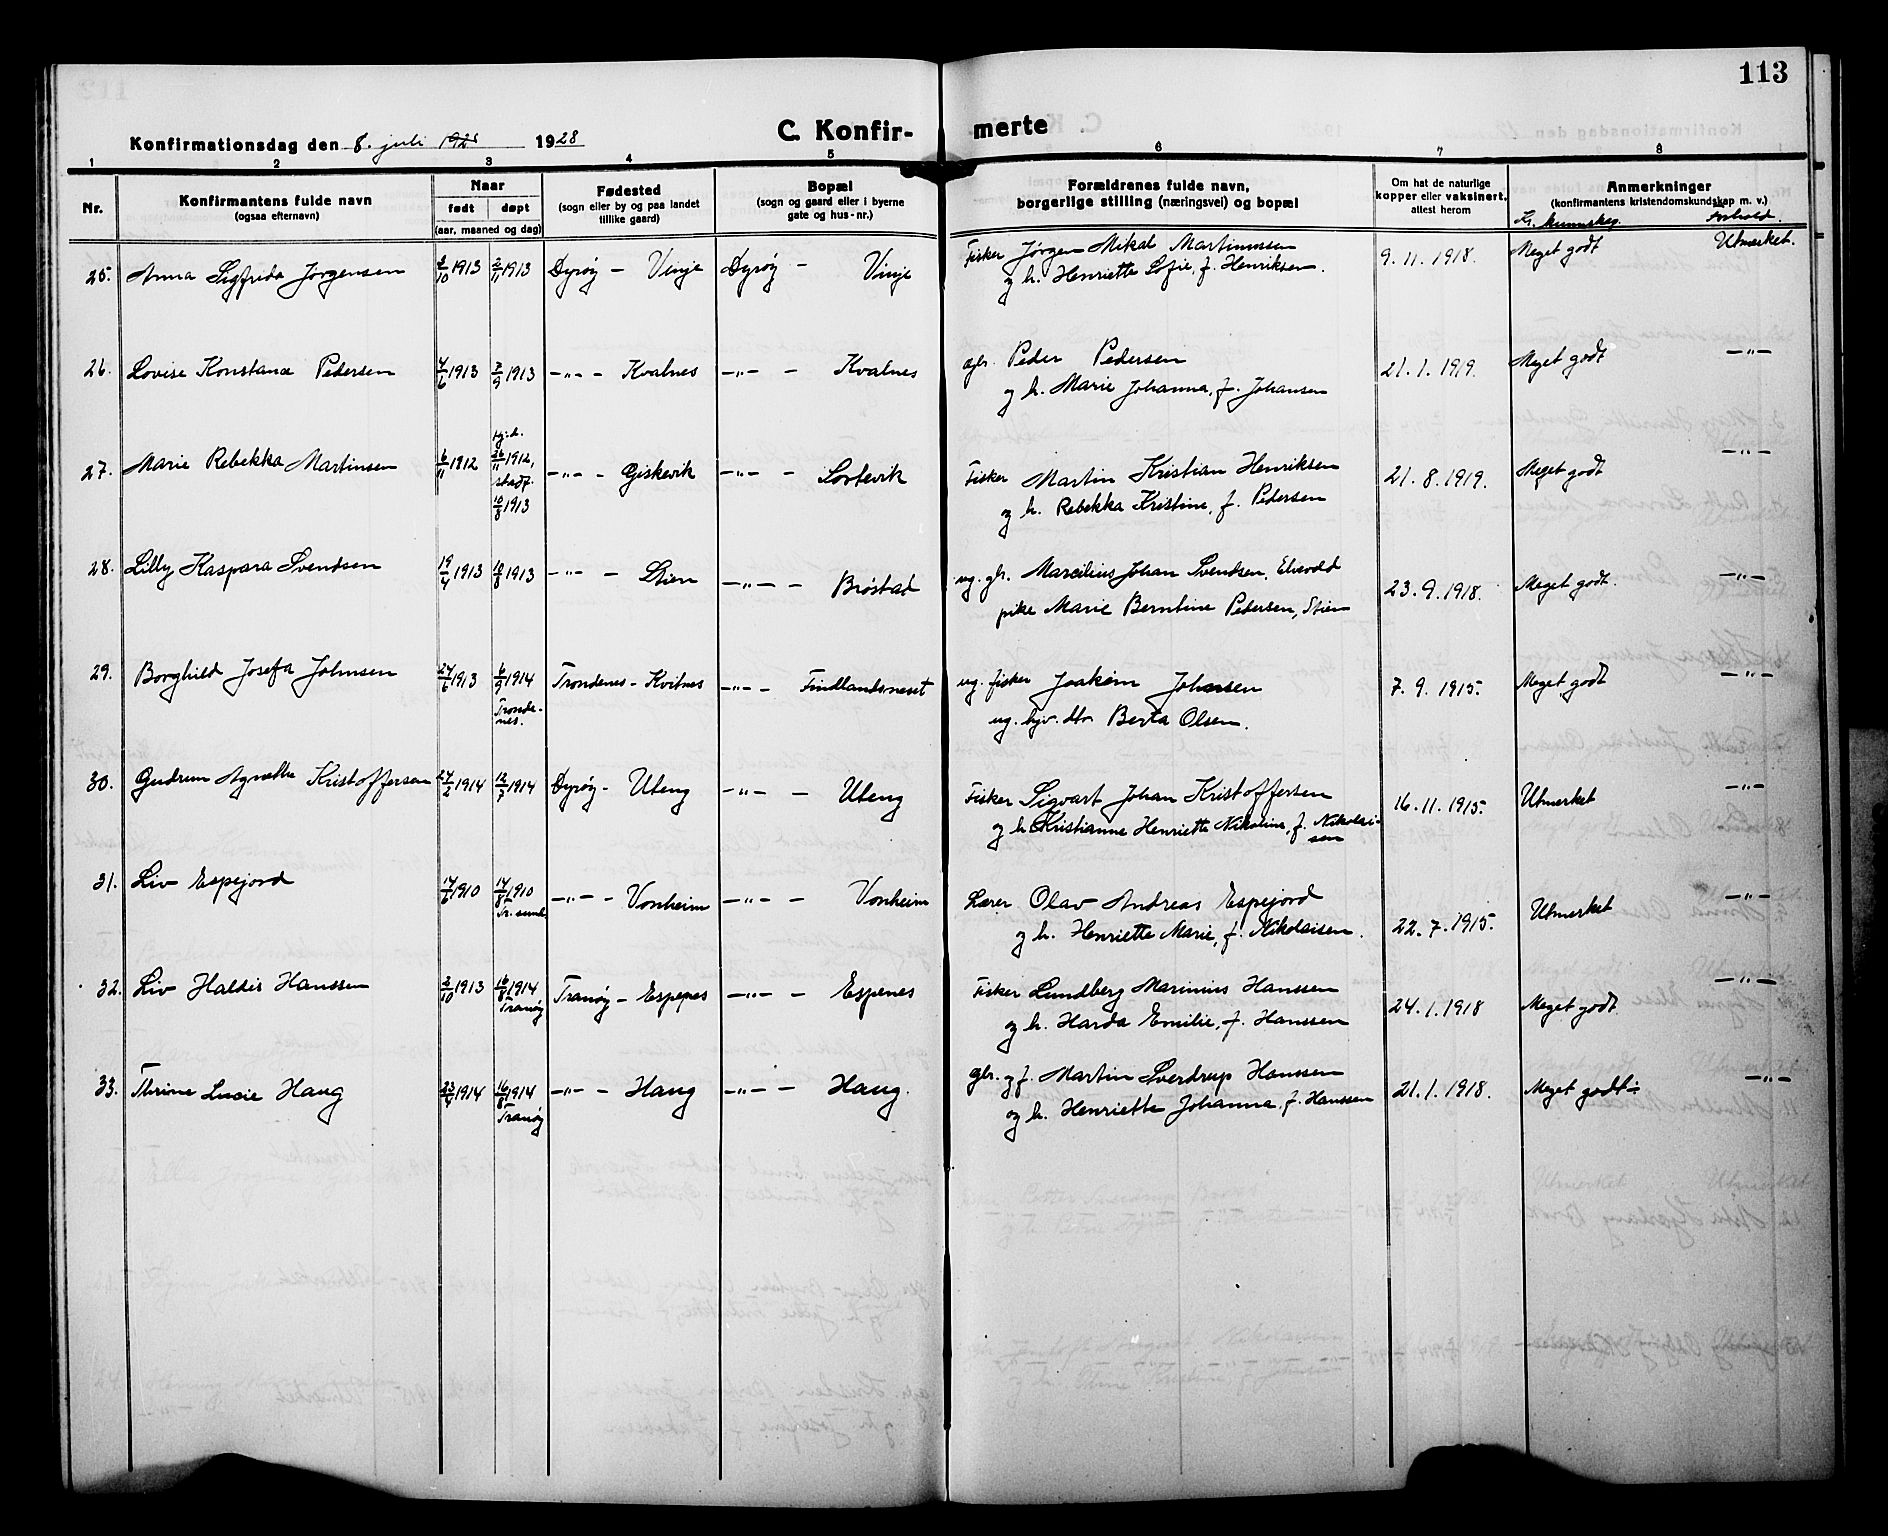 113
C. Konfir- merte
Konfirmationsdag den 8. juli 1928 1928
1 2 3 4 5 6 7 8
Nr.
Konfirmantens fulde navn
(ogsaa efternavn)
Naar
født døpt
(aar, maaned og dag)
Fødested
(sogn eller by og paa landet
tillike gaard)
Bopæl
(sogn og gaard eller i byerne
gate og hus-nr.)
Forældrenes fulde navn,
borgerlige stilling (næringsvei) og bopæl
Om hat de naturlige
kopper eller vaksinert,
attest herom
Anmerkninger
(konfirmantens kristendomskundskap m. v.)
Kr. kunnskap. Forhold.
25. Anna Sigfrida Jørgensen 2/10 1913 2/11 1913 Dyrøy - Vinje Dyrøy - Vinje Fisker Jørgen Mikal Martinussen 9.11.1918. Meget godt Utmerket.
og h. Henriette Sofie, f. Henriksen.
26. Lovise Konstance Pedersen 4/6 1913 7/9 1913 -"- - Kvalnes -"- - Kvalnes gbr. Peder Pedersen 21.1.1919. Meget godt -"-
og h. Marie Johanna, f. Johansen
27. Marie Rebekka Martinsen 6/11 1912 Hj.d.
26/11 1912,
stadf.
10/8 1913 -"- - Giskevik -"- - Sortevik Fisker Martin Kristian Henriksen 21.8.1919. Meget godt -"-
og h. Rebekka Kristine, f. Pedersen
28. Lilly Kaspara Svendsen 19/4 1913 10/8 1913 -"- - Stien -"- - Brøstad ug. gbr. Marcilius Johan Svendsen, 23.9.1918. Meget godt. -"-
pike Marie Berntine Pedersen, Stien
29. Borghild Josefa Johnsen 24/6 1913 6/9 1914
Tronde-
nes. Trondenes - Kvitnes -"- - Findlandsneset ug. fisker Joakim Johansen 7.9.1915. Meget godt -"-
ug. hjv. dtr. Berta Olsen.
30. Gudrun Agnethe Kristoffersen 24/2 1914 12/7 1914 Dyrøy - Uteng -"- - Uteng Fisker Sigvart Johan Kristoffersen 16.11.1915. Utmerket -"-
og h. Kristianne Henriette Nikoline, f. Nikolai-
sen
31. Liv Espejord 14/6 1910 14/8 1910 -"- - Vonheim -"- - Vonheim Lærer Olav Andreas Espejord 22.7.1915. Utmerket -"-
og h. Henriette Marie, f. Nikolaisen.
32. Liv Haldis Hanssen 3/10 1913 16/8 1914
Tranøy Tranøy - Espenes -"- - Espenes Fisker Lundberg Marinius Hanssen 24.1.1918 Meget godt. -"-
og h. Harda Emilie, f. Hanssen
33. Thrine Lucie Haug 23/4 1914 16/8 1914
Tranøy -"- - Haug -"- - Haug. gbr. og f. Martin Sverdrup Hanssen 21.1.1918. Meget godt ÷ -"-
og h. Henriette Johanna, f. Hanssen